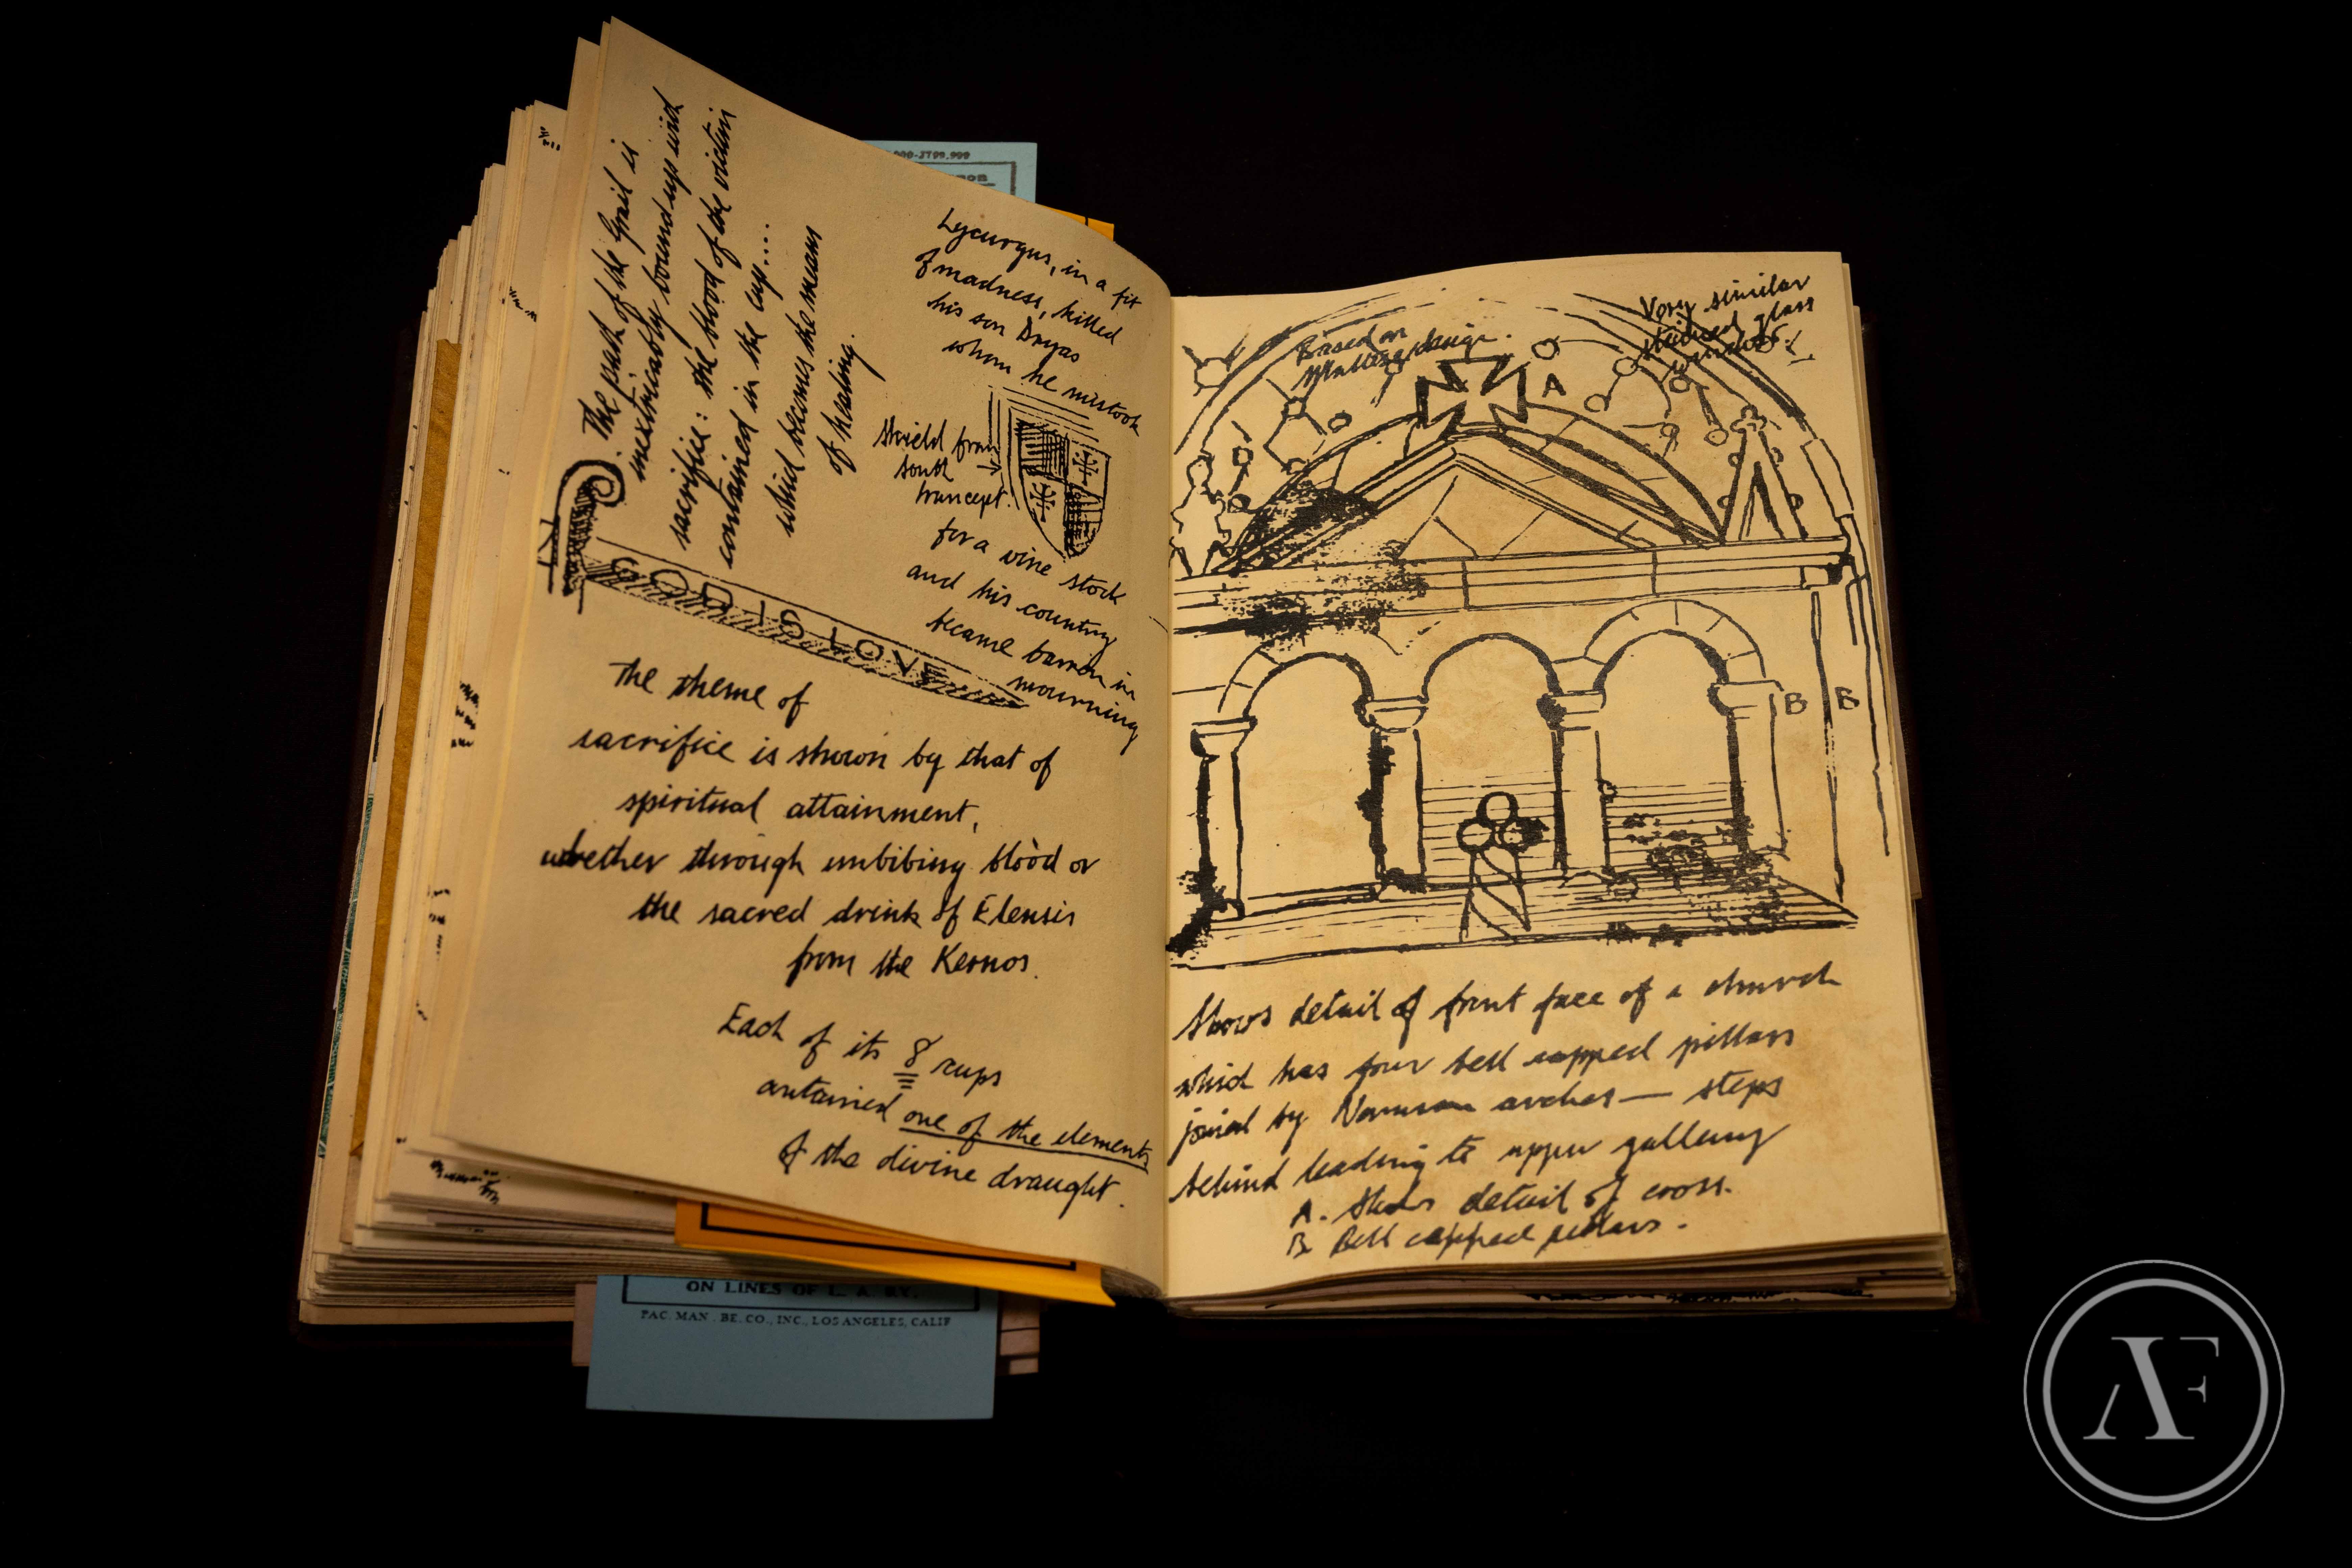 The path of the Grail is
inextricably bound up with
sacrifice: the blood of the victim
contained in the cup....
which becomes the means
of healing.
Lycurgus, in a fit
of madness, killed
his son Dryas
whom he mistook
Shield from
south
trancept.
for a vine stock
and his country
became barren in
mourning
GOD IS LOVE
The theme of
sacrifice is shown by that of
spiritual attainment,
whether through imbibing blood or
the sacred drink of Eleusis
from the Kernos.
Each of its 8 cups
contained one of the elements
of the divine draught.
Based on
Maltese design.
Very similar
stained glass
window.
A
B
B
Shows detail of front face of a church
which has four bell capped pillars
joined by Norman arches — steps
behind leading to upper gallery
A. Shows detail of cross.
B. Bell capped pillars.
ON LINES OF L. A. RY.
PAC. MAN. BE. CO., INC., LOS ANGELES, CALIF
AF